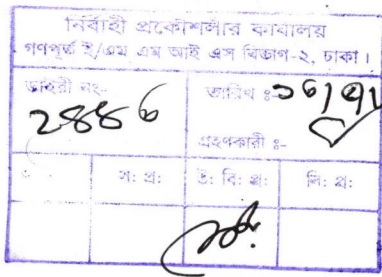 নির্বাহী প্রকৌশলীর কার্যালয়
গণপূর্ত ই/এম এম আই এস বিভাগ-২, ঢাকা।
ডাইরী নং-
তারিখ ঃ-
গ্রহণকারী ঃ-
স: প্র: উ: বি: প্র: লি: প্র: